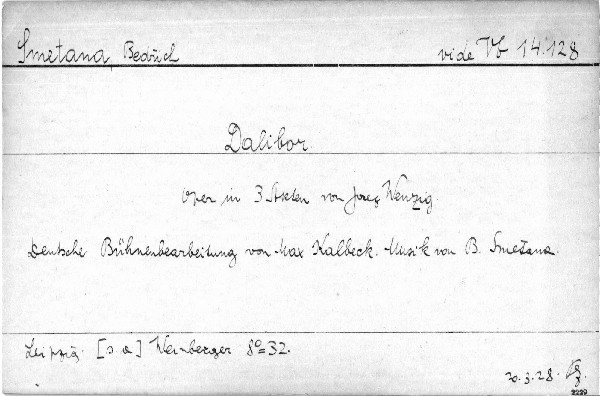 Smetana, Bedřich vide Tb 14.128
Dalibor.
Oper in 3 Akten von Josef Wenzig.
Deutsche Bühnenbearbeitung von Max Kalbeck. Musik von B. Smetana.
Leipzig. [s a] Weinberger 8°=32.
20.3.28.
2229